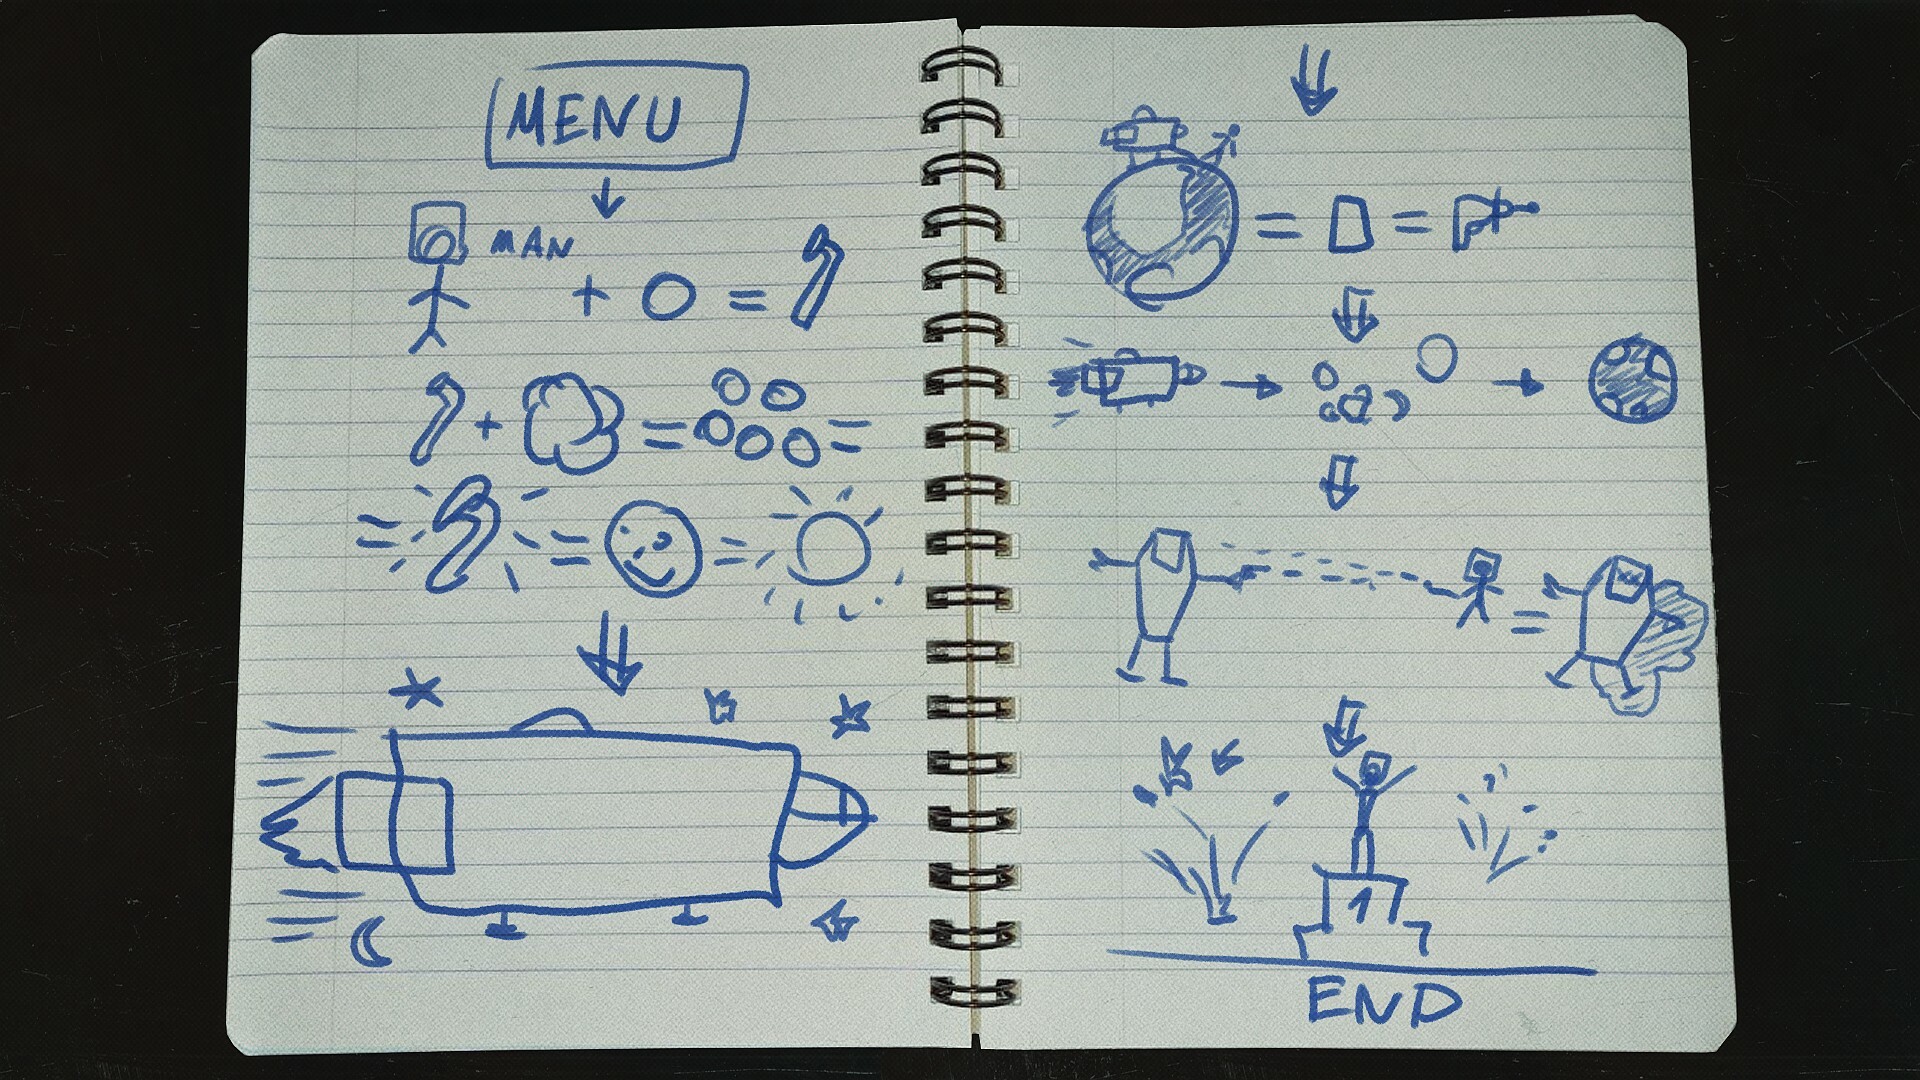 MENU
MAN
1
END